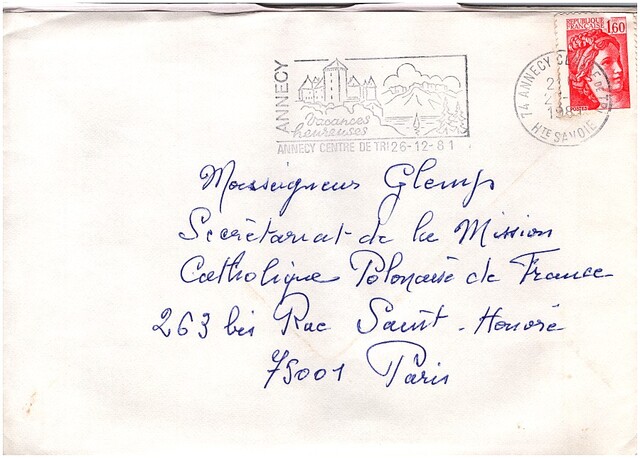 ANNECY
Vacances
heureuses
ANNECY CENTRE DE TRI 26-12-81
REPUBLIQUE
FRANÇAISE 1,60
74 ANNECY CENTRE DE TRI
HTE SAVOIE
Monseigneur Glemp
Secrétariat de la Mission
Catholique Polonaise de France
263 bis Rue Saint-Honoré
75001 Paris